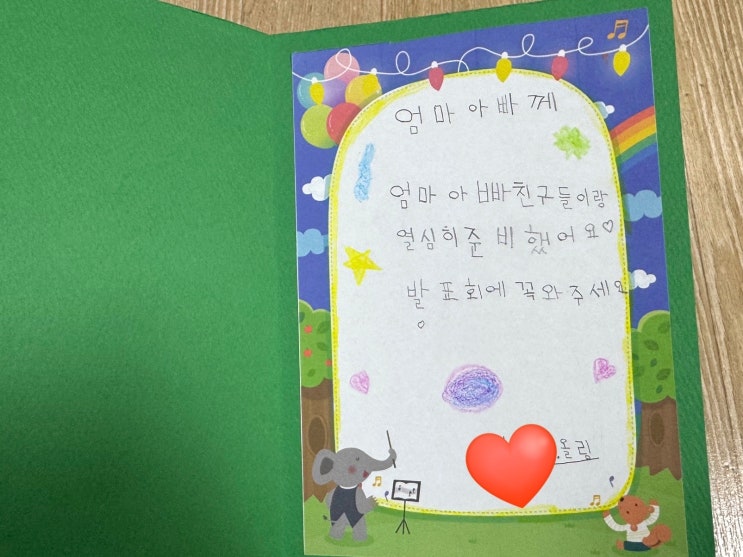 엄마아빠께
엄마 아빠친구들이랑
열심히준비했어요♡
발표회에꼭와주세요
。
올림